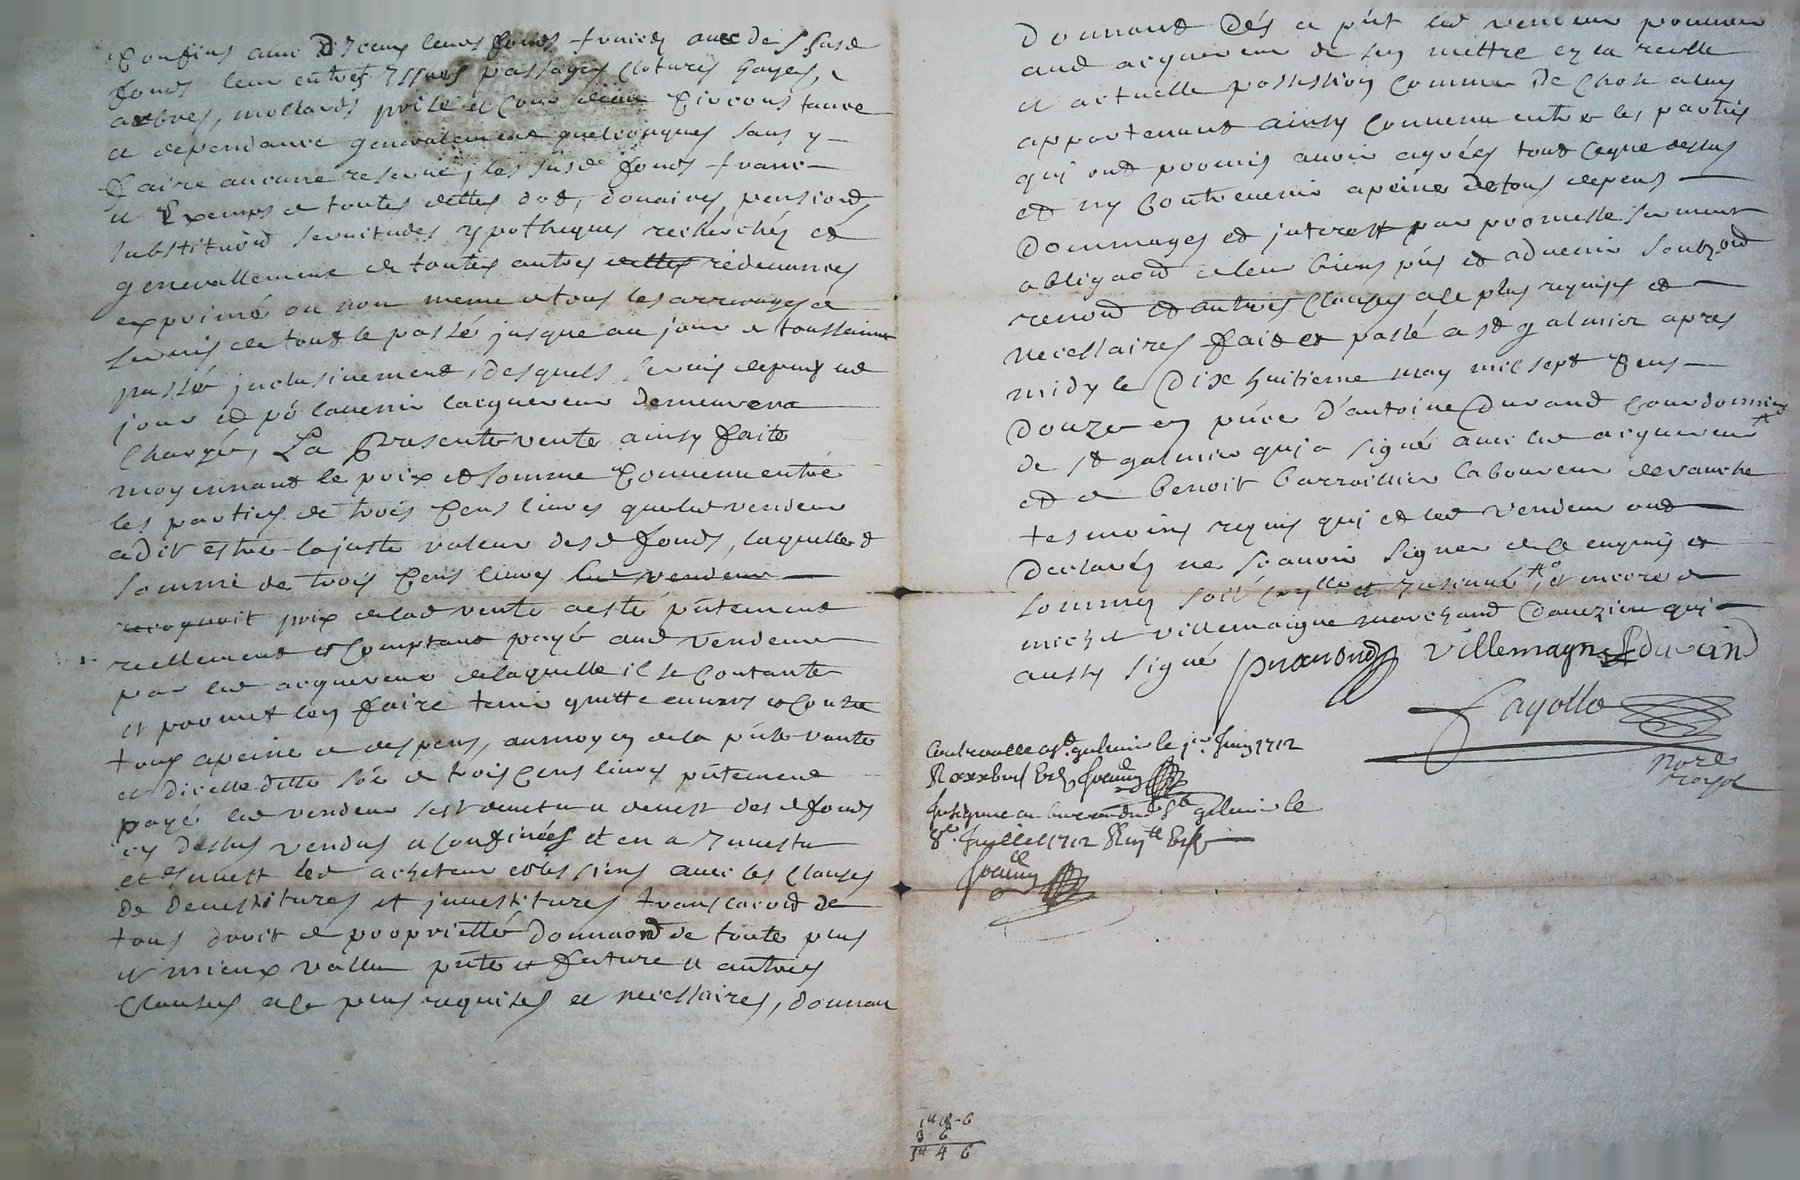 confins avec d'Iceux leurs fonds francs avec des susd
fonds leur entrées yssues passages clotures hayes,
arbres, mollards prise et cour d'eau circonstance
et dependance generalement quelconques sans y
faire aucune reserve, les susd fonds franc
et Exemps de toutes dettes dot, douaires, pensions,
substituōn servitudes ypotheques recherchés et
generallement de toutes autres dettes redevances
exprimé ou non meme de tous les arrerages de
servis de tout le passé jusque au jour de toussaint
passée inclusivement, desquels servis depuis led
jour et po' lavenir lacquereur demeurera
Chargé, La Presente vente ainsy faite
moyennant le prix et somme convenu entre
les parties de trois cens livres que led vendeur
a dit estre la juste valeur desd fonds, laquelle d
somme de trois cens livres led vendeur
recognoit prix de lad vente a esté pn̄tement
reellement et comptant payé aud vendeur
par led acquereur de laquelle il se contante
et promet len faire tenir quitte envers et contre
tous a peine de despens, au moyen de la pn̄te vente
et d'icelle ditte so͞e de trois cens livres pn̄tement
payé led vendeur s'est devetu et devest des d fonds
cy dessus vendus et confinées et en a Investu
et Investt led acheteur et les siens avec les clauses
de devestitures et investitures translaōn de
tous droit de proprietté donnaōn de toute plus
et mieux vallue pn̄te et future et autres
Clauses a ce plus requises et necessaires, donnan
Donnant Dés a pn̄t led vendeur pouvoir
aud acquereur de sen mettre en la reelle
et actuelle possession comme de chose a luy
appartenant ainsy convenu entre les parties
qui ont promis avoir agrées tout ce que dessus
et ny contrevenir a peine de tous depens
dommages et interest par promesse serment
obligaōn de leur biens pn̄s et advenir soubz͞on
renon͞on et autres clauses a ce plus requises et
necessaires fait et passé a st galmier apres
midy le Dix huitieme may mil sept cens
Douze en pn̄ce d'antoine Durand cordonnier
de st galmier qui a signé avec led acquereur
et de benoit barroillier laboureur de vauche
tesmoins requis qui et led vendeur ont
declarés ne scavoir signer de ce enquis et
sommés soit controllé et Insinué et encore de
michel villemaigne marchand d'auezieu qui
aussy signé villemagne Durand
Fayolle
Nore
royal
Controollé a st galmier le 1er Juin 1712
Insinué au bureau dud st galmier le
8e Juillet 1712
1tt 18 - 6
3 6
1tt 4 6